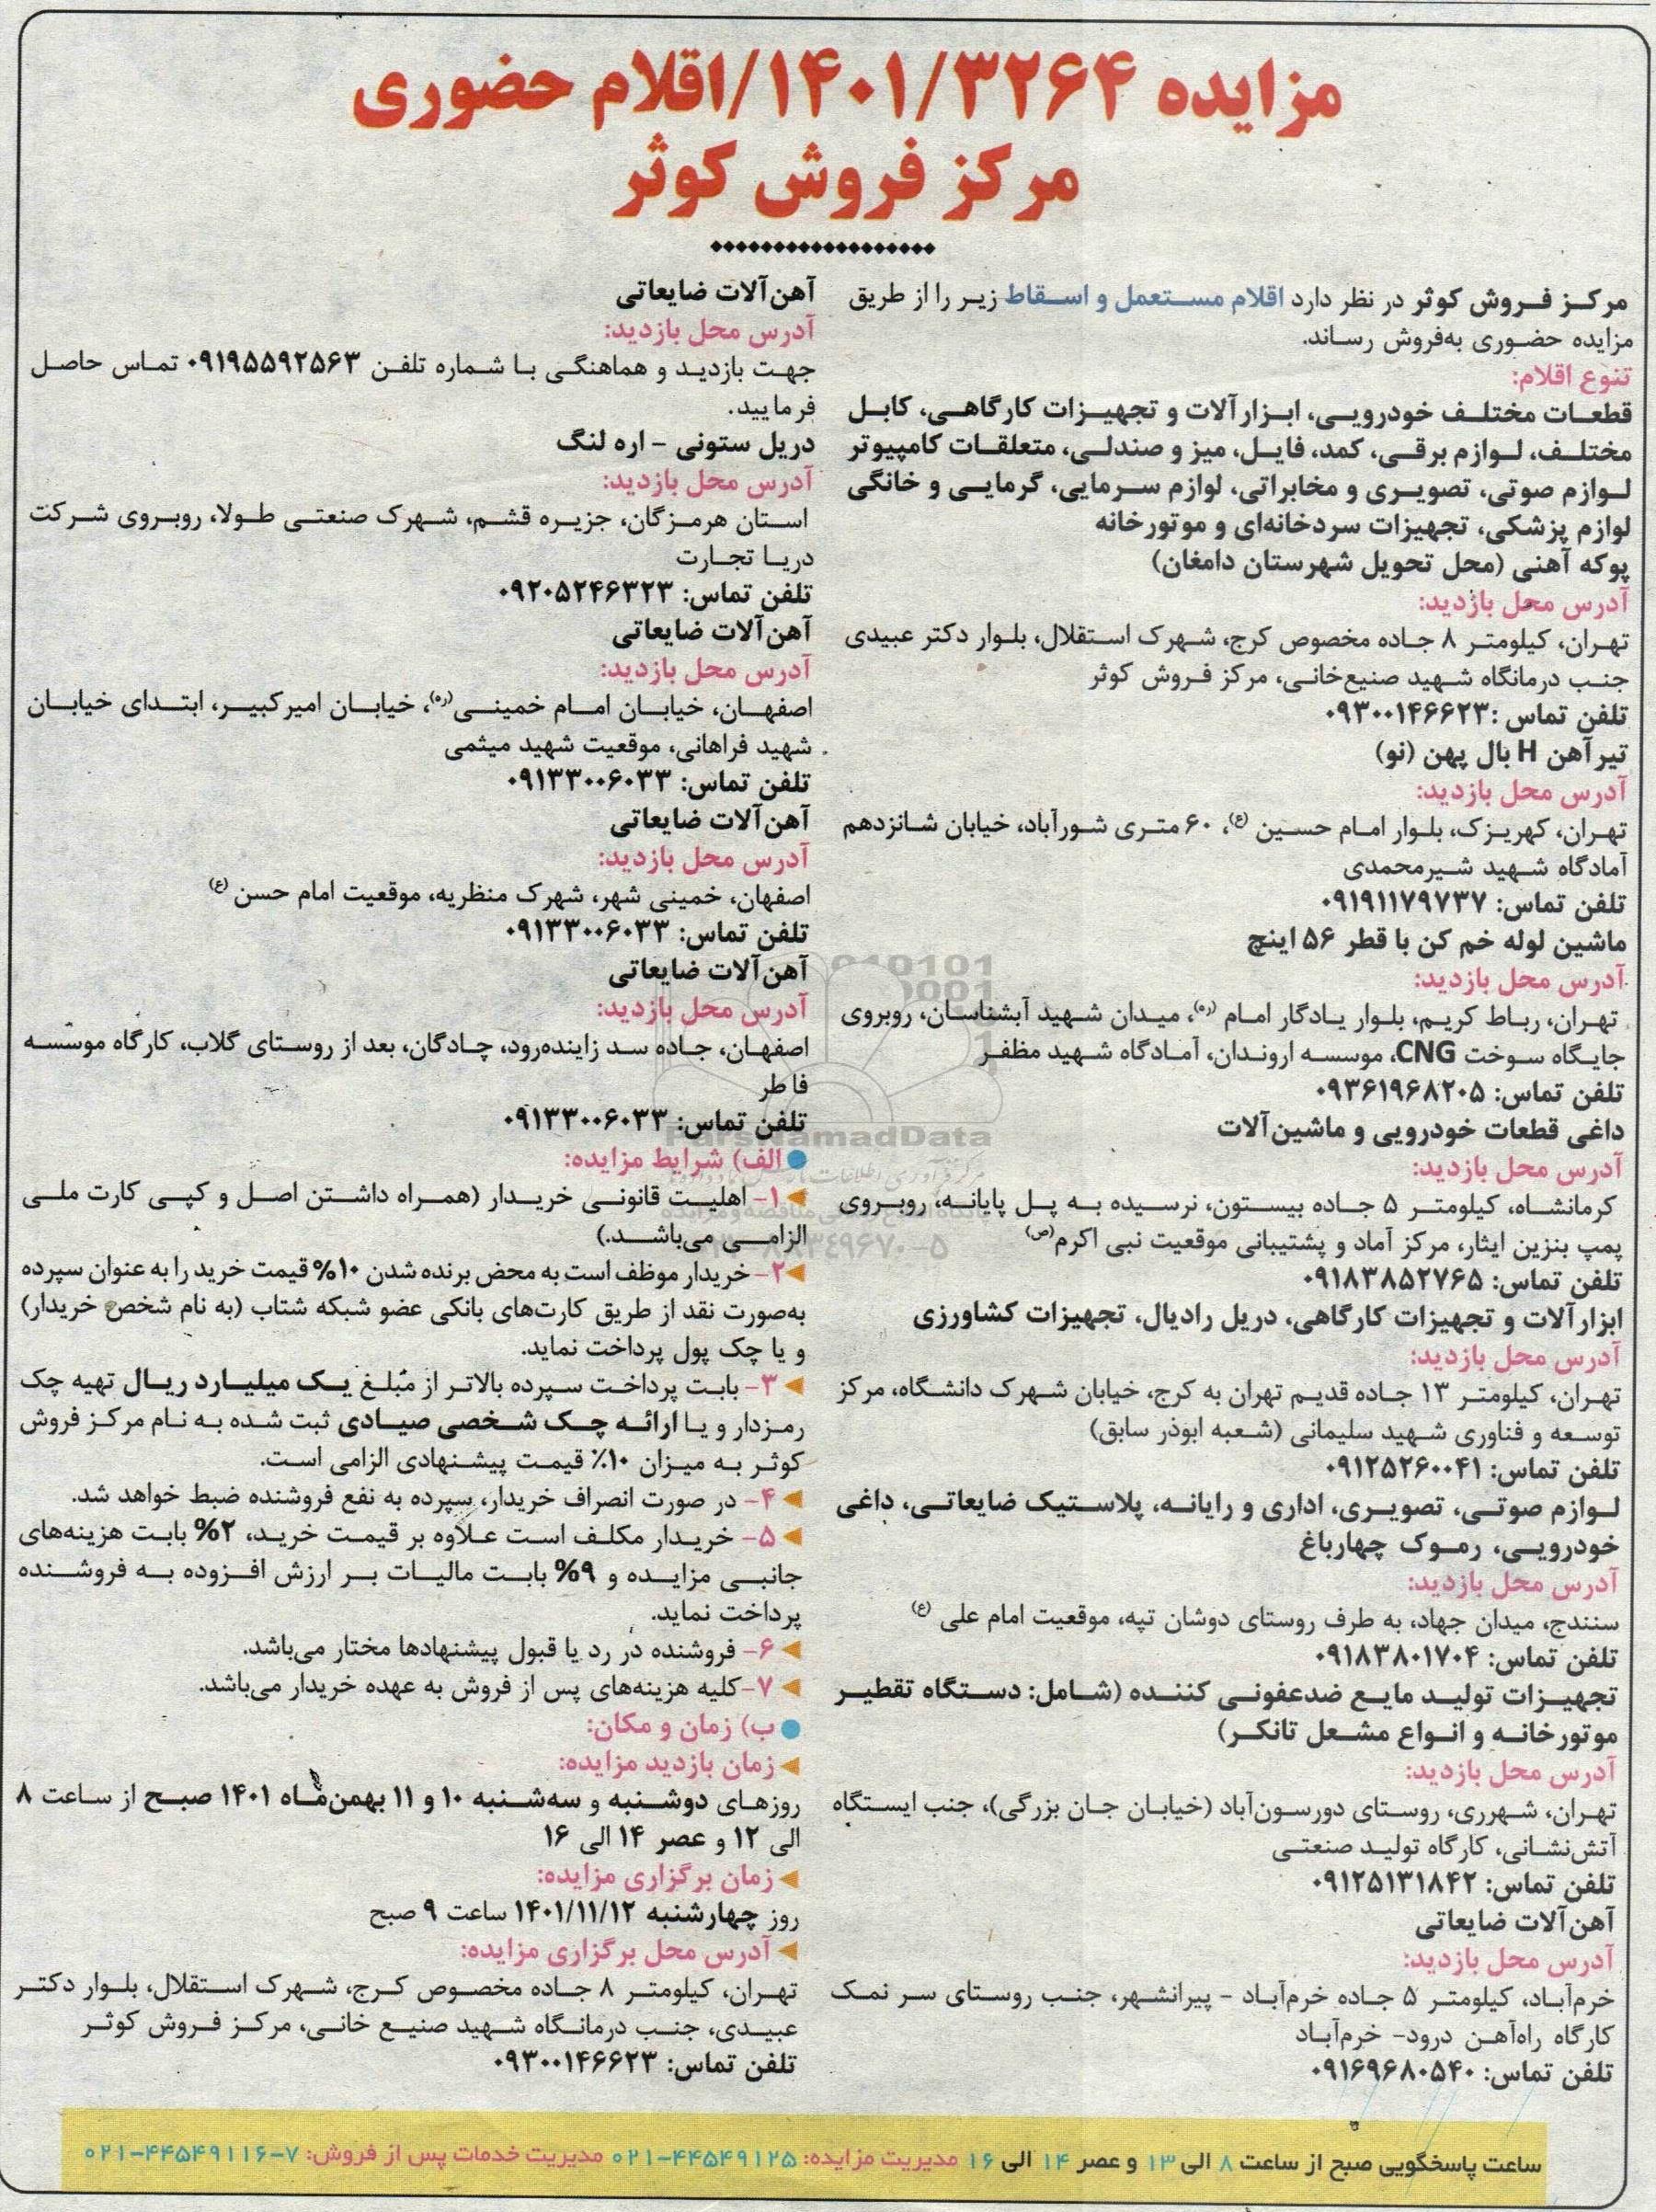 مزایده ۱۴۰۱/۳۲۶۴/اقلام حضوری
مرکز فروش کوثر
مرکز فروش کوثر در نظر دارد اقلام مستعمل و اسقاط زیر را از طریق
مزایده حضوری به‌فروش رساند.
تنوع اقلام:
قطعات مختلف خودرویی، ابزارآلات و تجهیزات کارگاهی، کابل
مختلف، لوازم برقی، کمد، فایل، میز و صندلی، متعلقات کامپیوتر
لوازم صوتی، تصویری و مخابراتی، لوازم سرمایی، گرمایی و خانگی
لوازم پزشکی، تجهیزات سردخانه‌ای و موتورخانه
پوکه آهنی (محل تحویل شهرستان دامغان)
آدرس محل بازدید:
تهران، کیلومتر ۸ جاده مخصوص کرج، شهرک استقلال، بلوار دکتر عبیدی
جنب درمانگاه شهید صنیع‌خانی، مرکز فروش کوثر
تلفن تماس :۰۹۳۰۰۱۴۶۶۲۳
تیرآهن H بال پهن (نو)
آدرس محل بازدید:
تهران، کهریزک، بلوار امام حسین (ع)، ۶۰ متری شورآباد، خیابان شانزدهم
آمادگاه شهید شیرمحمدی
تلفن تماس: ۰۹۱۹۱۱۷۹۷۳۷
ماشین لوله خم کن با قطر ۵۶ اینچ
آدرس محل بازدید:
تهران، رباط کریم، بلوار یادگار امام (ره)، میدان شهید آبشناسان، روبروی
جایگاه سوخت CNG، موسسه اروندان، آمادگاه شهید مظفر
تلفن تماس: ۰۹۳۶۱۹۶۸۲۰۵
داغی قطعات خودرویی و ماشین‌آلات
آدرس محل بازدید:
کرمانشاه، کیلومتر ۵ جاده بیستون، نرسیده به پل پایانه، روبروی
پمپ بنزین ایثار، مرکز آماد و پشتیبانی موقعیت نبی اکرم(ص)
تلفن تماس: ۰۹۱۸۳۸۵۲۷۶۵
ابزارآلات و تجهیزات کارگاهی، دریل رادیال، تجهیزات کشاورزی
آدرس محل بازدید:
تهران، کیلومتر ۱۳ جاده قدیم تهران به کرج، خیابان شهرک دانشگاه، مرکز
توسعه و فناوری شهید سلیمانی (شعبه ابوذر سابق)
تلفن تماس: ۰۹۱۲۵۲۶۰۰۴۱
لوازم صوتی، تصویری، اداری و رایانه، پلاستیک ضایعاتی، داغی
خودرویی، رموک چهارباغ
آدرس محل بازدید:
سنندج، میدان جهاد، به طرف روستای دوشان تپه، موقعیت امام علی (ع)
تلفن تماس: ۰۹۱۸۳۸۰۱۷۰۴
تجهیزات تولید مایع ضدعفونی کننده (شامل: دستگاه تقطیر
موتورخانه و انواع مشعل تانکر)
آدرس محل بازدید:
تهران، شهرری، روستای دورسون‌آباد (خیابان جان بزرگی)، جنب ایستگاه
آتش‌نشانی، کارگاه تولید صنعتی
تلفن تماس: ۰۹۱۲۵۱۳۱۸۴۲
آهن‌آلات ضایعاتی
آدرس محل بازدید:
خرم‌آباد، کیلومتر ۵ جاده خرم‌آباد - پیرانشهر، جنب روستای سر نمک
کارگاه راه‌آهن درود- خرم‌آباد
تلفن تماس: ۰۹۱۶۹۶۸۰۵۴۰
آهن‌آلات ضایعاتی
آدرس محل بازدید:
جهت بازدید و هماهنگی با شماره تلفن ۰۹۱۹۵۵۹۲۵۶۳ تماس حاصل
فرمایید.
دریل ستونی - اره لنگ
آدرس محل بازدید:
استان هرمزگان، جزیره قشم، شهرک صنعتی طولا، روبروی شرکت
دریا تجارت
تلفن تماس: ۰۹۲۰۵۲۴۶۳۲۳
آهن‌آلات ضایعاتی
آدرس محل بازدید:
اصفهان، خیابان امام خمینی(ره)، خیابان امیرکبیر، ابتدای خیابان
شهید فراهانی، موقعیت شهید میثمی
تلفن تماس: ۰۹۱۳۳۰۰۶۰۳۳
آهن‌آلات ضایعاتی
آدرس محل بازدید:
اصفهان، خمینی شهر، شهرک منظریه، موقعیت امام حسن (ع)
تلفن تماس: ۰۹۱۳۳۰۰۶۰۳۳
آهن‌آلات ضایعاتی
آدرس محل بازدید:
اصفهان، جاده سد زاینده‌رود، چادگان، بعد از روستای گلاب، کارگاه موسسه
فاطر
تلفن تماس: ۰۹۱۳۳۰۰۶۰۳۳
الف) شرایط مزایده:
۱- اهلیت قانونی خریدار (همراه داشتن اصل و کپی کارت ملی
الزامی می‌باشد.)
۲- خریدار موظف است به محض برنده شدن ۱۰% قیمت خرید را به عنوان سپرده
به‌صورت نقد از طریق کارت‌های بانکی عضو شبکه شتاب (به نام شخص خریدار)
و یا چک پول پرداخت نماید.
۳- بابت پرداخت سپرده بالاتر از مبلغ یک میلیارد ریال تهیه چک
رمزدار و یا ارائه چک شخصی صیادی ثبت شده به نام مرکز فروش
کوثر به میزان ۱۰٪ قیمت پیشنهادی الزامی است.
۴- در صورت انصراف خریدار، سپرده به نفع فروشنده ضبط خواهد شد.
۵- خریدار مکلف است علاوه بر قیمت خرید، ۲% بابت هزینه‌های
جانبی مزایده و ۹% بابت مالیات بر ارزش افزوده به فروشنده
پرداخت نماید.
۶- فروشنده در رد یا قبول پیشنهادها مختار می‌باشد.
۷-کلیه هزینه‌های پس از فروش به عهده خریدار می‌باشد.
ب) زمان و مکان:
زمان بازدید مزایده:
روزهای دوشنبه و سه‌شنبه ۱۰ و ۱۱ بهمن‌ماه ۱۴۰۱ صبح از ساعت ۸
الی ۱۲ و عصر ۱۴ الی ۱۶
زمان برگزاری مزایده:
روز چهارشنبه ۱۴۰۱/۱۱/۱۲ ساعت ۹ صبح
آدرس محل برگزاری مزایده:
تهران، کیلومتر ۸ جاده مخصوص کرج، شهرک استقلال، بلوار دکتر
عبیدی، جنب درمانگاه شهید صنیع خانی، مرکز فروش کوثر
تلفن تماس: ۰۹۳۰۰۱۴۶۶۲۳
ساعت پاسخگویی صبح از ساعت ۸ الی ۱۳ و عصر ۱۴ الی ۱۶ مدیریت مزایده: ۰۲۱-۴۴۵۴۹۱۲۵ مدیریت خدمات پس از فروش: ۷-۰۲۱-۴۴۵۴۹۱۱۶
ParsNamadData